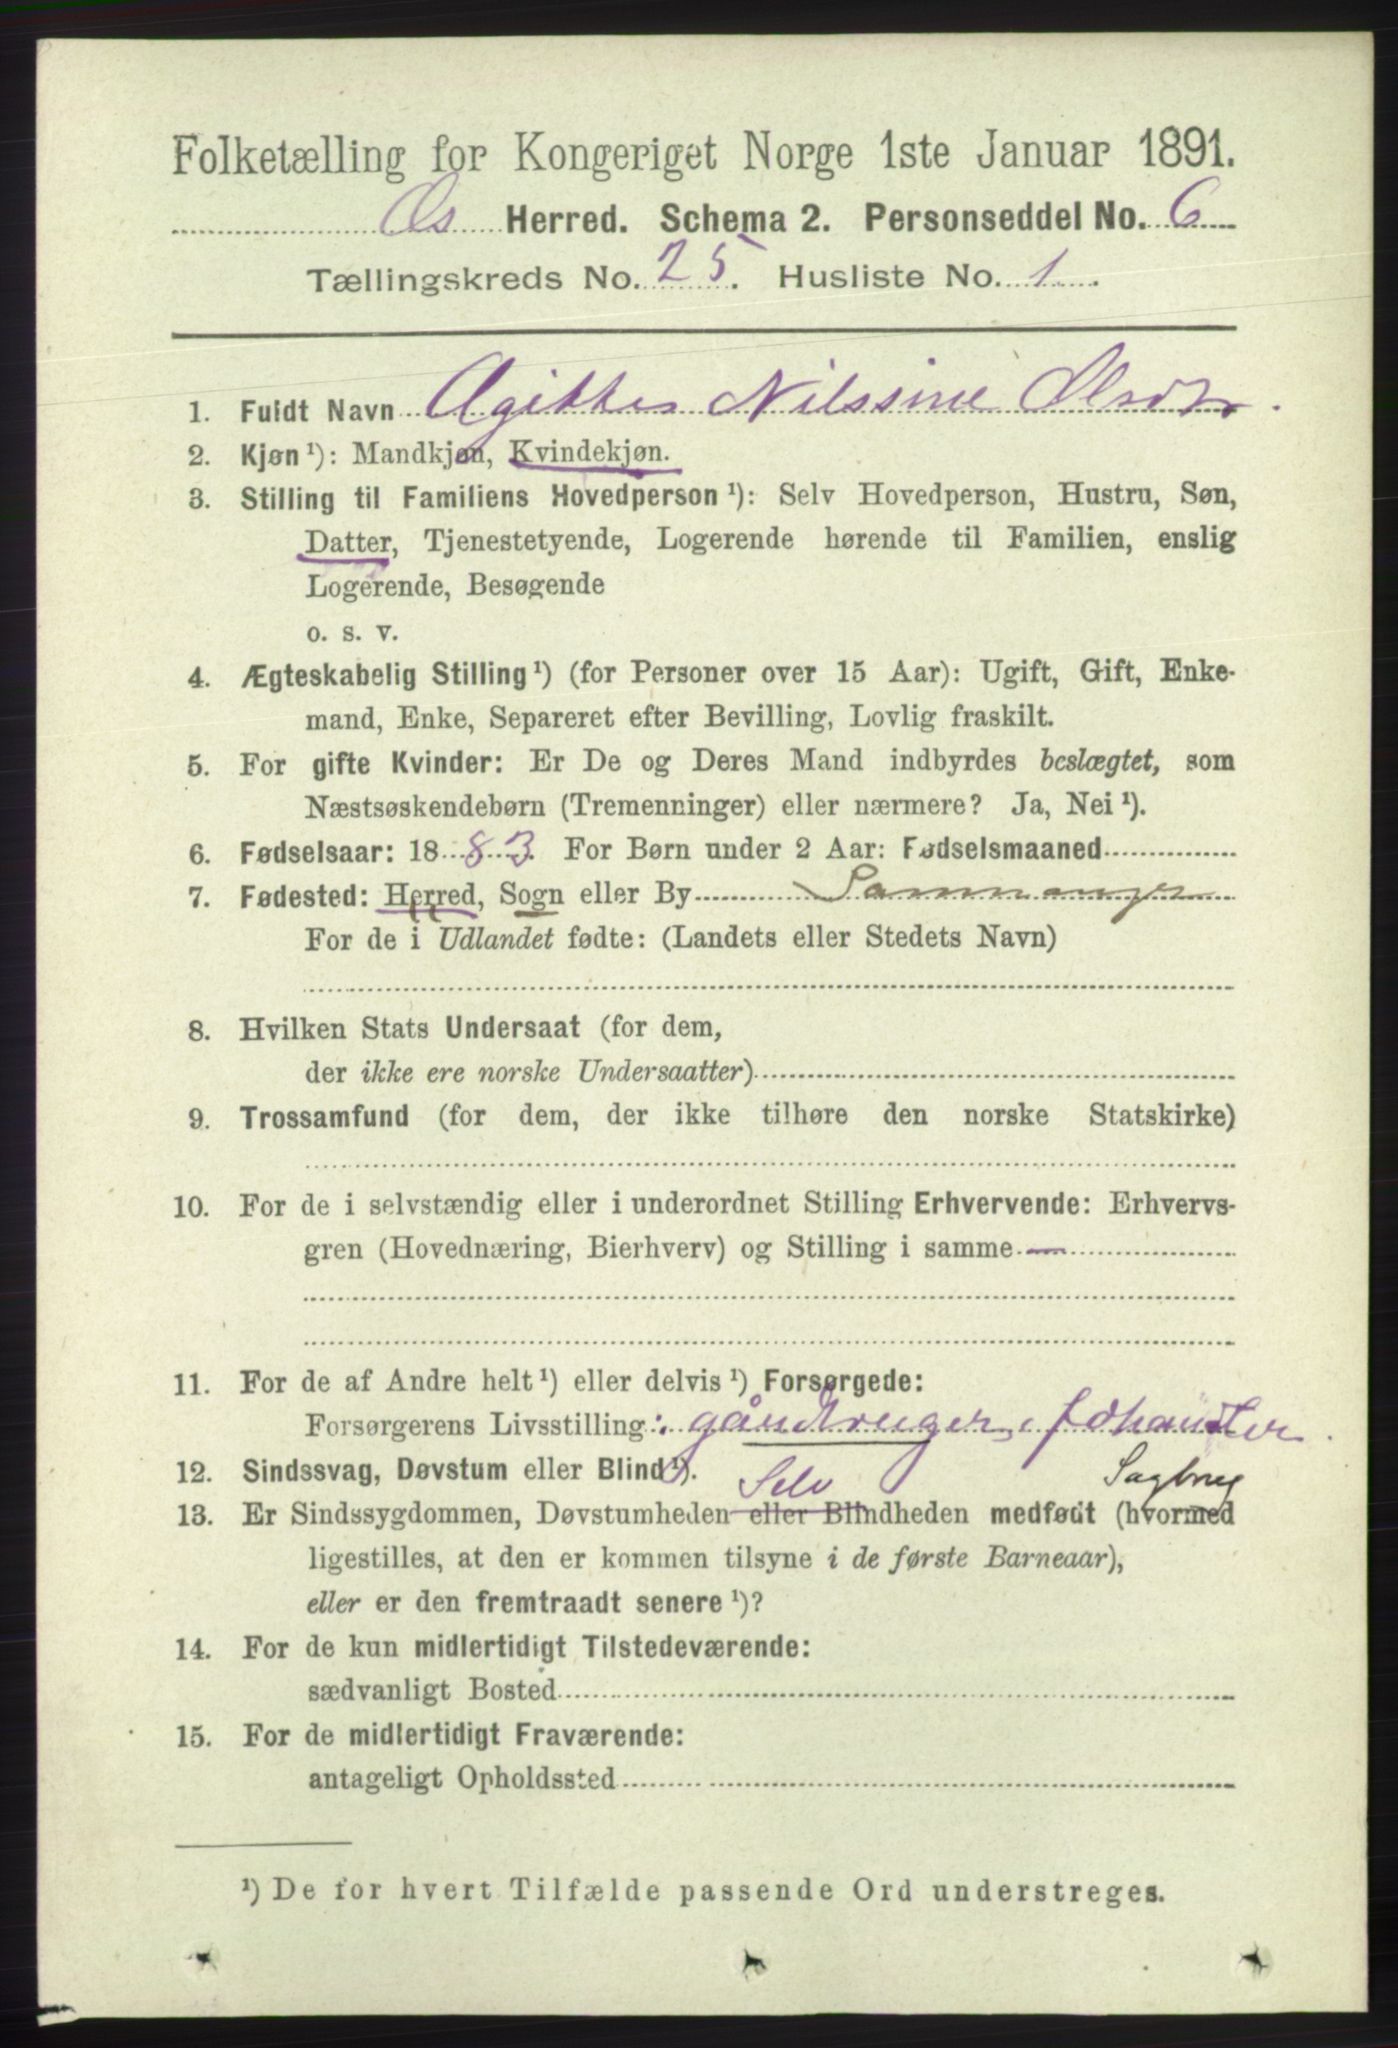 Folketælling for Kongeriget Norge 1ste Januar 1891.
Os Herred. Schema 2. Personseddel No. 6
Tællingskreds No. 25. Husliste No. 1.
1. Fuldt Navn Nilssine
2. Kjøn ¹): Mandkjøn, Kvindekjøn.
3. Stilling til Familiens Hovedperson ¹): Selv Hovedperson, Hustru, Søn,
Datter, Tjenestetyende, Logerende hørende til Familien, enslig
Logerende, Besøgende
o. s. v.
4. Ægteskabelig Stilling ¹) (for Personer over 15 Aar): Ugift, Gift, Enke-
mand, Enke, Separeret efter Bevilling, Lovlig fraskilt.
5. For gifte Kvinder: Er De og Deres Mand indbyrdes beslægtet, som
Næstsøskendebørn (Tremenninger) eller nærmere? Ja, Nei ¹).
6. Fødselsaar: 1883. For Børn under 2 Aar: Fødselsmaaned
7. Fødested: Herred, Sogn eller By Samnanger
For de i Udlandet fødte: (Landets eller Stedets Navn)
8. Hvilken Stats Undersaat (for dem,
der ikke ere norske Undersaatter)
9. Trossamfund (for dem, der ikke tilhøre den norske Statskirke)
10. For de i selvstændig eller i underordnet Stilling Erhvervende: Erhvervs-
gren (Hovednæring, Bierhverv) og Stilling i samme —
11. For de af Andre helt ¹) eller delvis ¹) Forsørgede:
Forsørgerens Livsstilling:
12. Sindssvag, Døvstum eller Blind ¹). Selv Sagbrug
13. Er Sindssygdommen, Døvstumheden eller Blindheden medfødt (hvormed
ligestilles, at den er kommen tilsyne i de første Barneaar),
eller er den fremtraadt senere ¹)?
14. For de kun midlertidigt Tilstedeværende:
sædvanligt Bosted
15. For de midlertidigt Fraværende:
antageligt Opholdssted
¹) De for hvert Tilfælde passende Ord understreges.